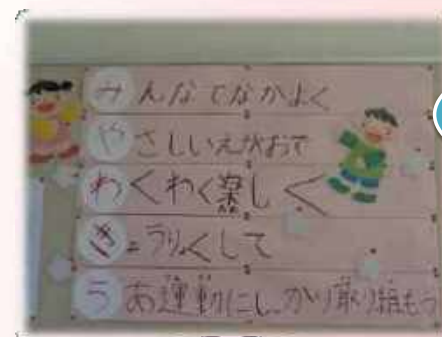 みんなでなかよく
やさしいえがおで
わくわく楽しく
きょうりょくして
うあ運動にしっかり取り組もう